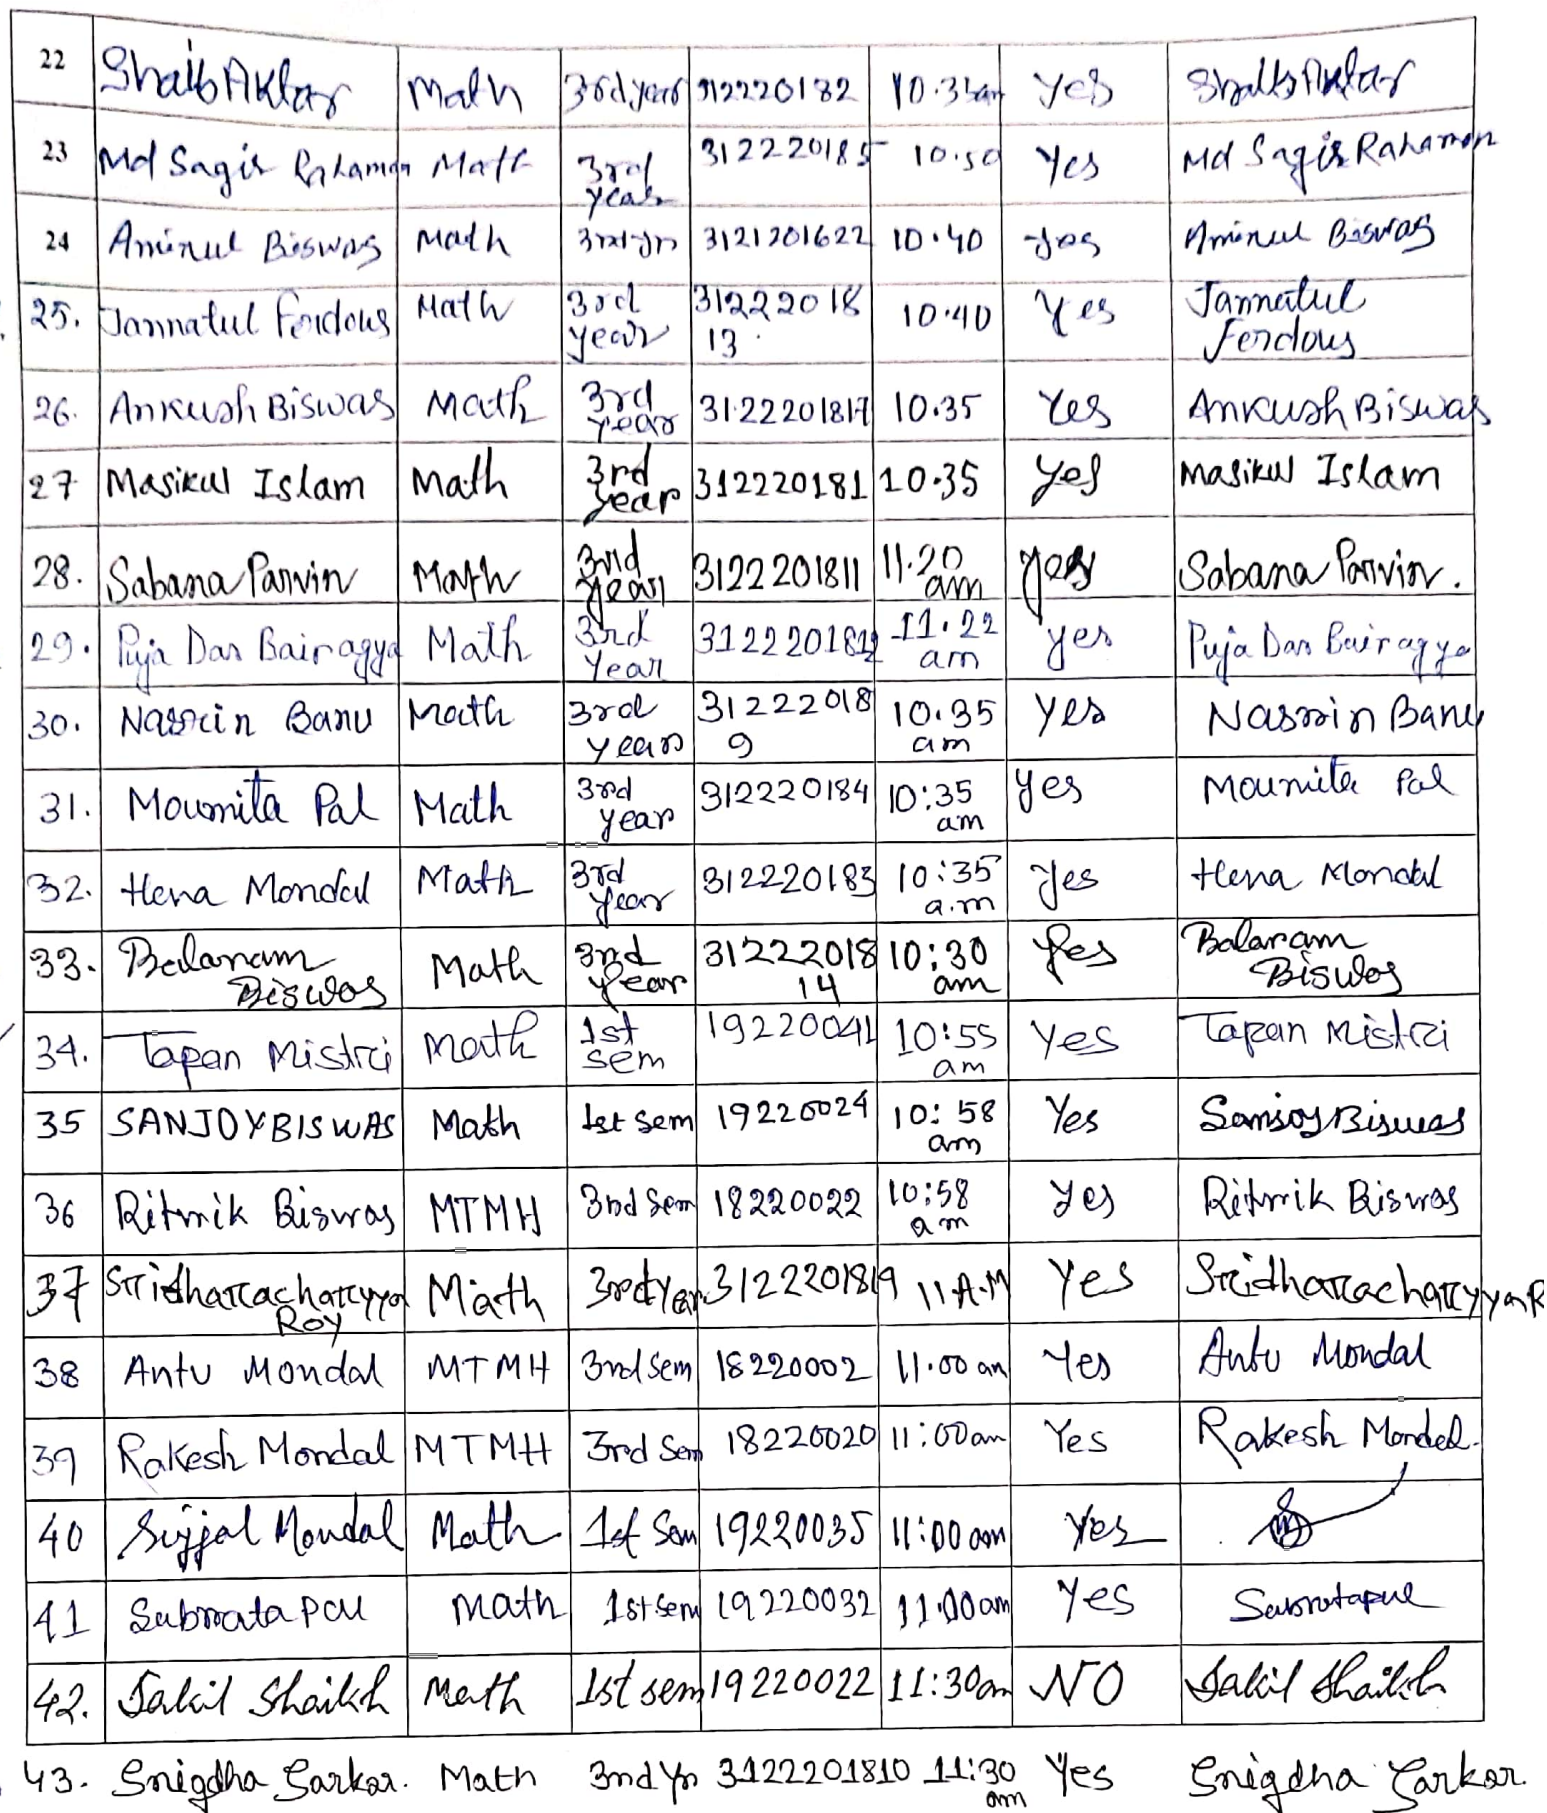 22 Shaib Aktar Math 3rd year 312220182 10.35am Yes Shaib Aktar
23 Md Sagir Rahaman Math 3rd year 312220185 10.50 Yes Md Sagir Rahaman
24 Aminul Biswas Math 3rd yr 3121201622 10.40 yes Aminul Biswas
25. Jannatul Ferdous Math 3rd year 3122201813. 10.40 Yes Jannatul Ferdous
26. Ankush Biswas Math 3rd year 3122201817 10.35 Yes Ankush Biswas
27 Masikul Islam Math 3rd year 312220181 10.35 Yes Masikul Islam
28. Sabana Parvin Math 3rd year 3122201811 11.20 am yes Sabana Parvin.
29. Puja Das Bairagya Math 3rd Year 3122201812 11.22 am yes Puja Das Bairagya
30. Nasrin Banu Math 3rd year 312220189 10.35 am yes Nasrin Banu
31. Moumita Pal Math 3rd year 312220184 10:35 am yes Moumita Pal
32. Hena Mondal Math 3rd year 312220183 10:35 a.m Yes Hena Mondal
33. Balaram Biswas Math 3rd year 3122201814 10:30 am Yes Balaram Biswas
34. Tapan Mistri Math 1st sem 19220041 10:55 am Yes Tapan Mistri
35 SANJOY BISWAS Math 1st sem 19220024 10:58 am Yes Sanjoy Biswas
36 Ritwik Biswas MTMH 3rd Sem 18220022 10:58 am Yes Ritwik Biswas
37 Sridharacharyya Roy Math 3rd Year 3122201819 11 A.M Yes Sridharacharyya R
38 Antu Mondal MTMH 3rd Sem 18220002 11.00 am Yes Antu Mondal
39 Rakesh Mondal MTMH 3rd Sem 18220020 11:00am Yes Rakesh Mondal.
40 Sujjal Mondal Math 1st Sem 19220035 11:00 am Yes
41 Subrata Pal Math 1st sem 19220032 11.00 am Yes Subrata Pal
42. Sakil Shaikh Math 1st sem 19220022 11:30am NO Sakil Shaikh
43. Snigdha Sarkar. Math 3rd Yr 3122201810 11:30 am Yes Snigdha Sarkar.